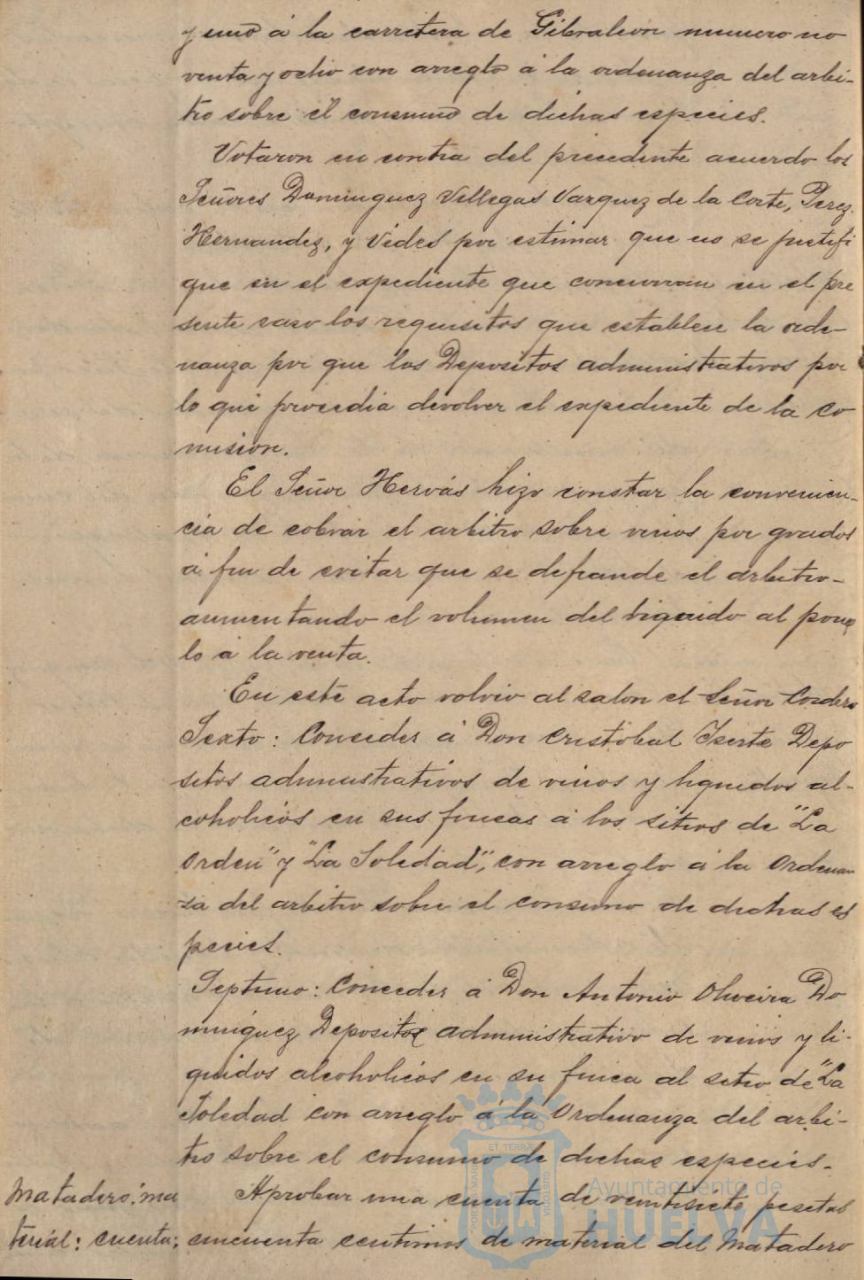 y uno á la carretera de Gibraleon numero no
venta y ocho con arreglo á la ordenanza del arbi-
trio sobre el consumo de dichas especies.
Votaron en contra del precedente acuerdo los
Señores Dominguez Villegas Vazquez de la Corte, Perez
Hernandez, y Vides por estimar que no se justifi
que en el expediente que concurran en el pre
sente caso los requisitos que establece la orde-
nanza por que los Depositos administrativos por
lo que procedia devolver el expediente de la co
mision.
El Señor Hervás hizo constar la convenien-
cia de cobrar el arbitro sobre vinos por grados
á fin de evitar que se defraude el arbitro-
aumentando el volumen del liquido al poner
lo á la venta.
En este acto volvio al salon el Señor Cordero
Sexto: Conceder á Don Cristobal Depo
sitos administrativos de vinos y liquidos al-
coholicos en sus fincas á los sitios de "La
Orden" y "La Soledad", con arreglo á la Ordenan
za del arbitrio sobre el consumo de dichas es
pecies.
Septimo: Conceder á Don Antonio Oliveira Do
minguez Deposito administrativo de vinos y li-
quidos alcoholicos en su finca al sitio de "La
Soledad con arreglo á la Ordenanza del arbi-
trio sobre el consumo de dichas especies.
Matadero: ma Aprobar una cuenta de veintisiete pesetas
terial: cuenta; cincuenta centimos de material del Matadero
Ayuntamiento de
HUELVA